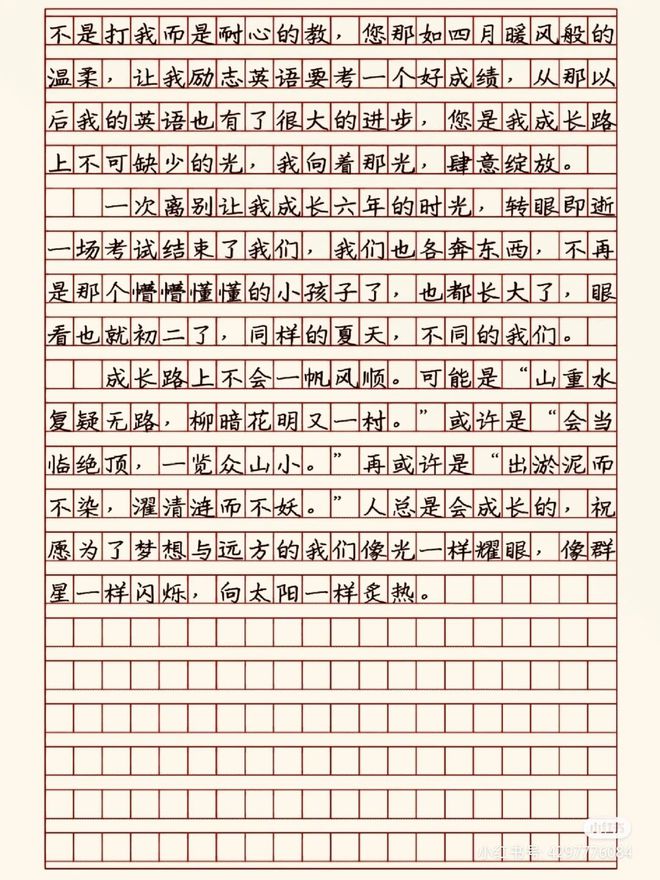 不是打我而是耐心的教，您那如四月暖风般的
温柔，让我励志英语要考一个好成绩，从那以
后我的英语也有了很大的进步，您是我成长路
上不可缺少的光，我向着那光，肆意绽放。
一次离别让我成长六年的时光，转眼即逝
一场考试结束了我们，我们也各奔东西，不再
是那个懵懵懂懂的小孩子了，也都长大了，眼
看也就初二了，同样的夏天，不同的我们。
成长路上不会一帆风顺。可能是“山重水
复疑无路，柳暗花明又一村。”或许是“会当
临绝顶，一览众山小。”再或许是“出淤泥而
不染，濯清涟而不妖。”人总是会成长的，祝
愿为了梦想与远方的我们像光一样耀眼，像群
星一样闪烁，向太阳一样炙热。
小红书
小红书号 4297776084